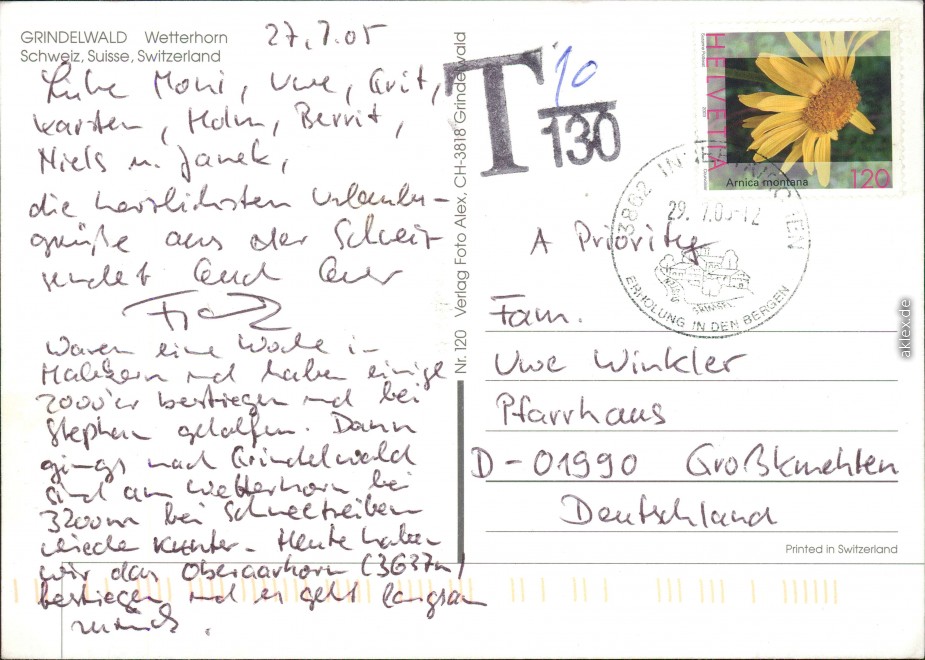 GRINDELWALD Wetterhorn
Schweiz, Suisse, Switzerland
27.7.05
Liebe Moni, Uwe, Grit,
Karsten, Holm, Berrit,
Niels u. Janek,
die herzlichsten Urlaubs-
grüße aus der Schweiz
sendet Euch Euer
Waren eine Woche in
und haben einige
2000'er bestiegen und bei
Stephan geholfen. Dann
gings nach Grindelwald
sind am Wetterhorn bei
3200m bei Schneetreiben
wieder runter. Heute haben
wir das Oberaarhorn (3637m)
bestiegen und es geht langsam
zurück.
Nr. 120 Verlag Foto Alex. CH-3818 Grindelwald
T 10
130
HELVETIA
Arnica montana
120
3862 INNERTKIRCHEN
29.7.05-12
ERHOLUNG IN DEN BERGEN
A Priority
Fam.
Uwe Winkler
Pfarrhaus
D-01990 Großkmehlen
Deutschland
Printed in Switzerland
aklex.de